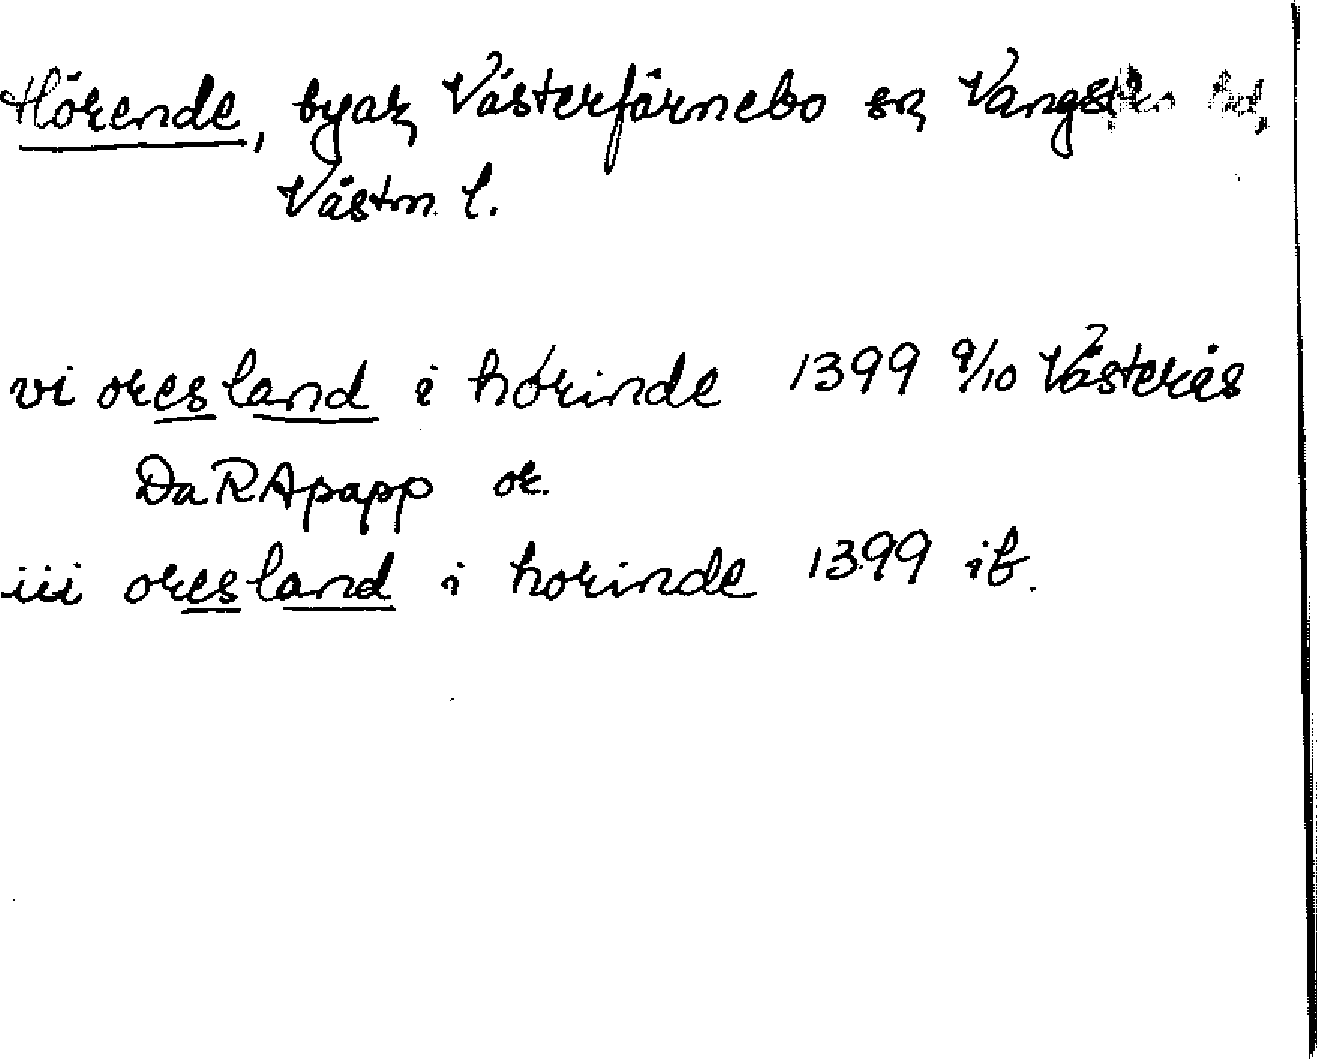 Hörende, byar, Västerfärnebo sn, Vangsbro hd,
Västm. l.
vi oresland i hørinde 1399 9/10 Västerås
Da RApapp or.
iii oresland i horinde 1399 ib.